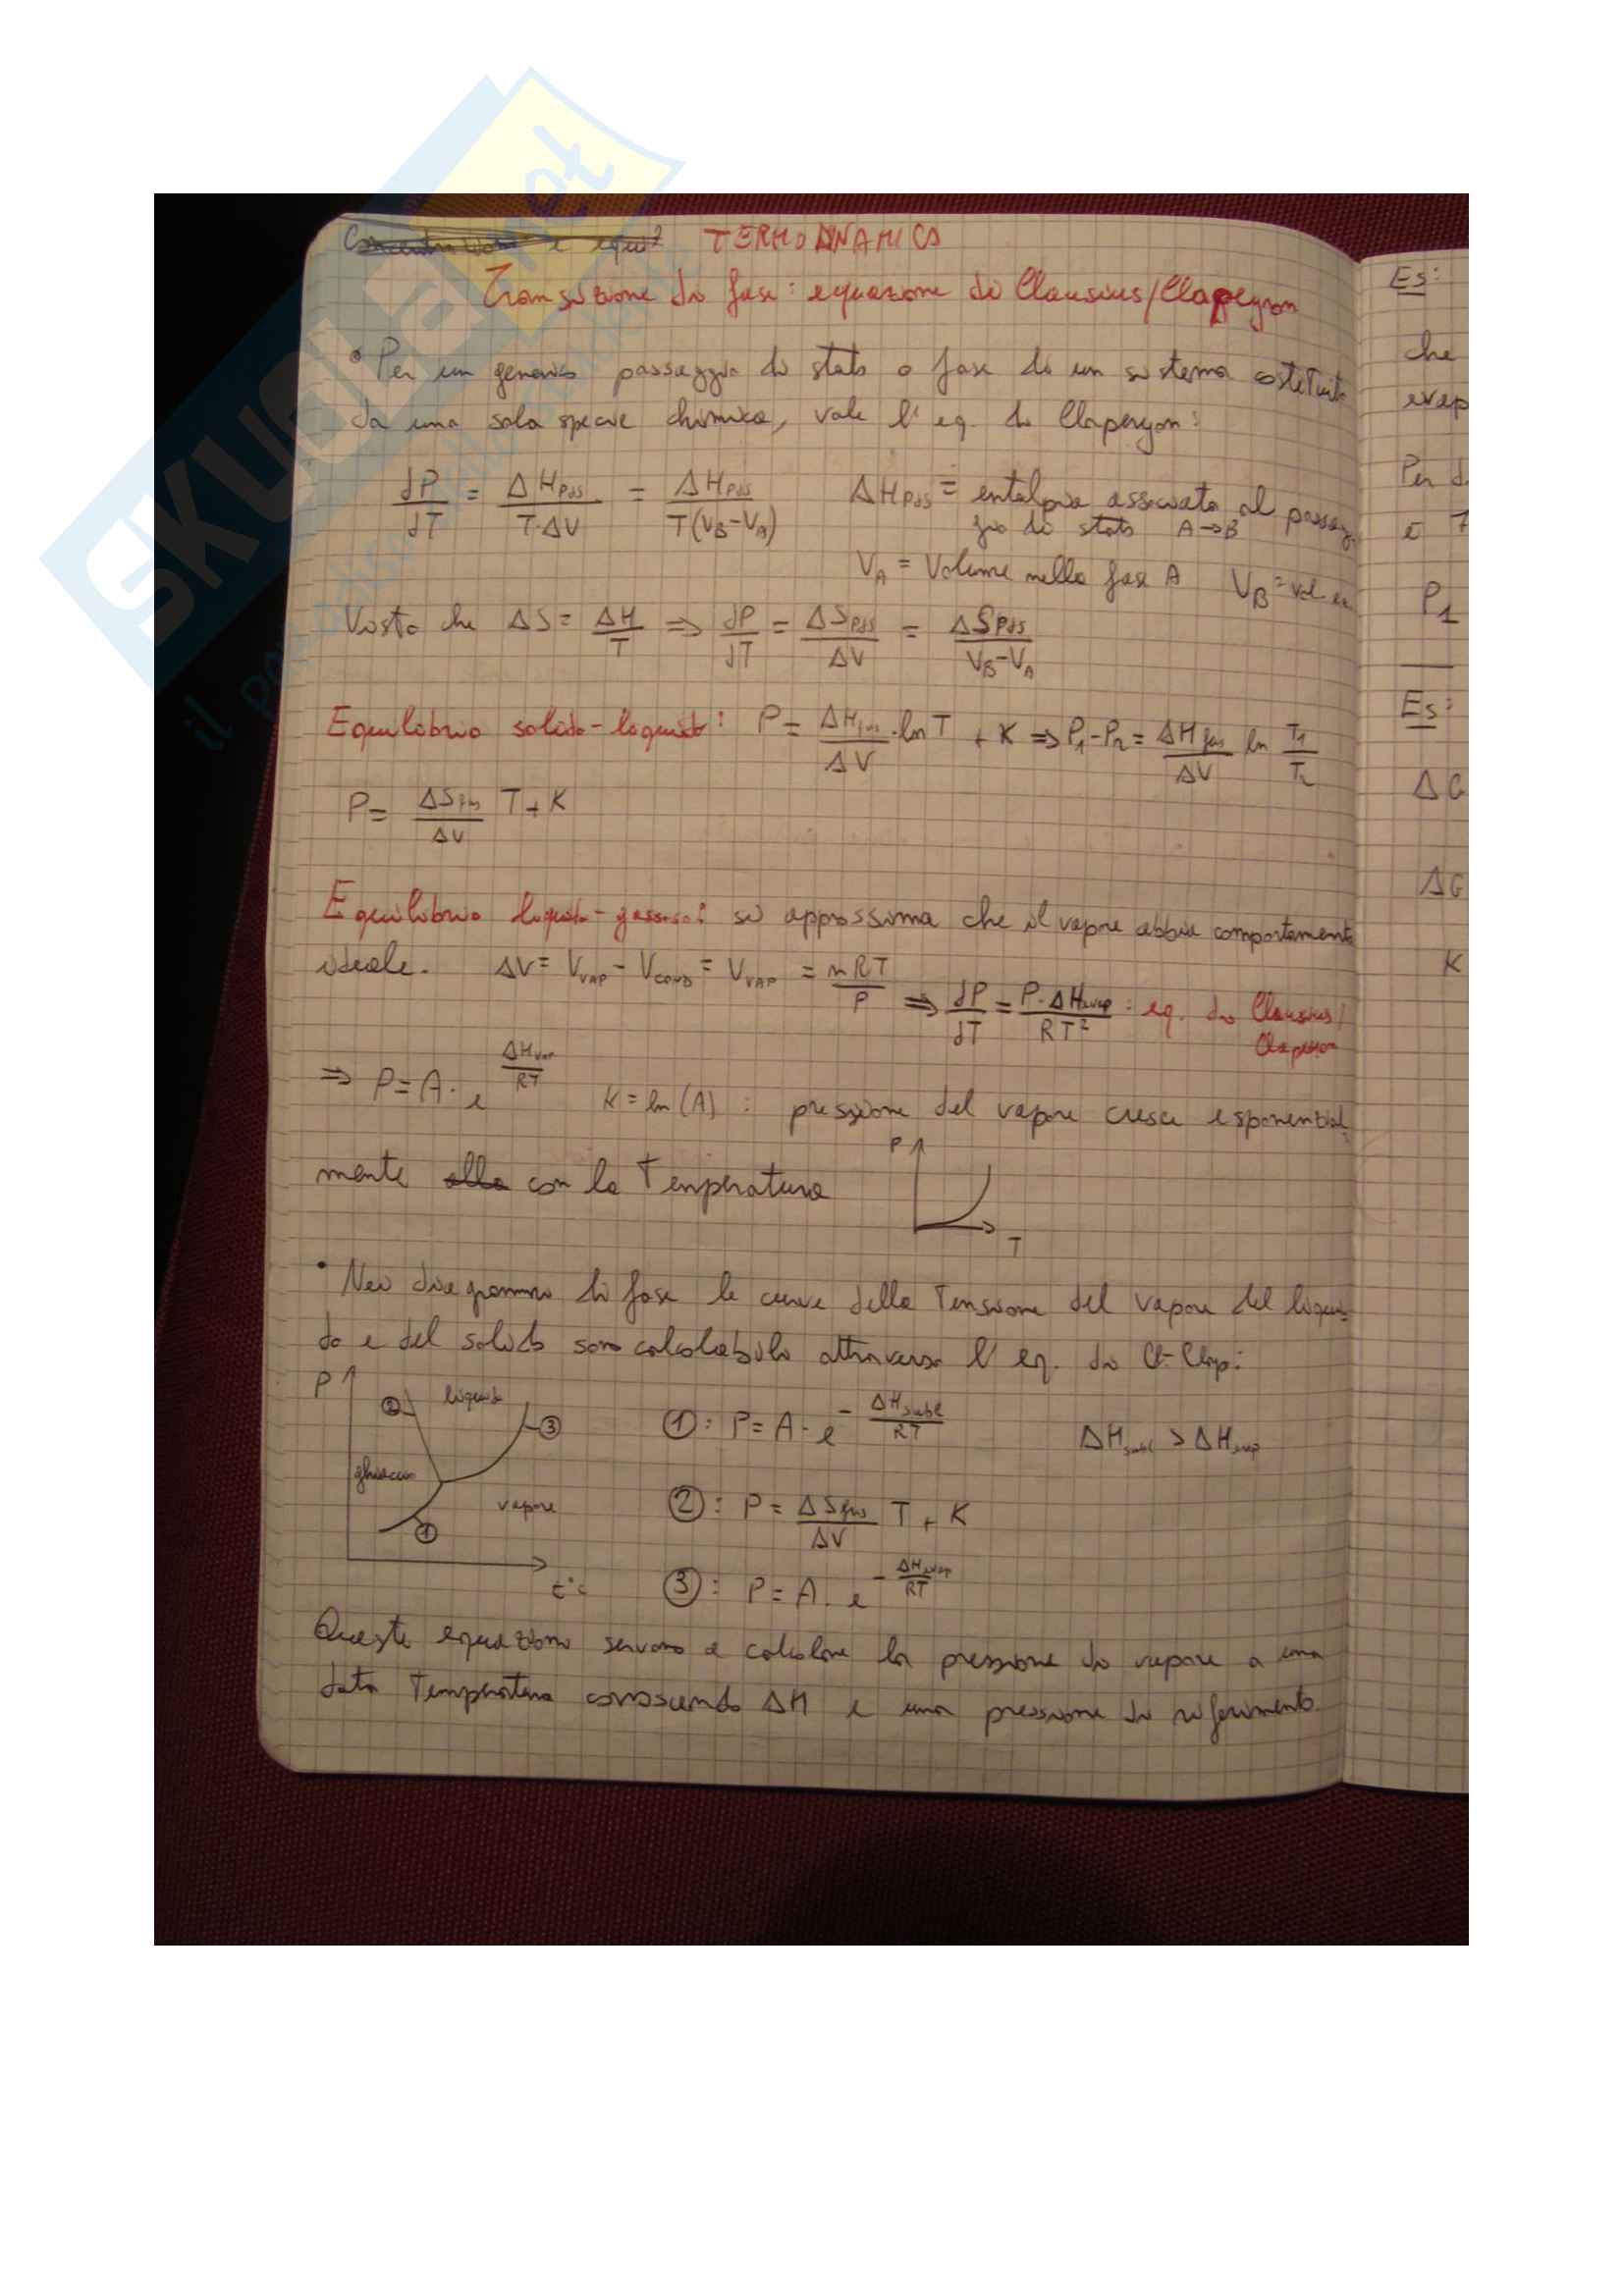 TERMODINAMICA
Transizione di fase: equazione di Clausius/Clapeyron
• Per un generico passaggio di stato o fase di un sistema costituito
da una sola specie chimica, vale l'eq. di Claperyon:
dP/dT = ΔHpds/T·ΔV = ΔHpds/T(VB-VA) ΔHpds = entalpia associata al passag
gio di stato A→B
VA = Volume nella fase A VB = vol. in
Visto che ΔS = ΔH/T ⇒ dP/dT = ΔSpds/ΔV = ΔSpds/VB-VA
Equilibrio solido-liquido: P = ΔHfus/ΔV · ln T + K ⇒ P1-P2 = ΔHfus/ΔV ln T1/T2
P = ΔSfus/ΔV T + K
Equilibrio liquido-gassoso: si approssima che il vapore abbia comportamento
ideale. ΔV = VVAP - VCOND = VVAP = nRT/P ⇒ dP/dT = P·ΔHevap/RT² : eq. di Clausius/
Claperon
⇒ P = A · e ΔHvap/RT K = ln(A) : pressione del vapore cresce esponenzial
mente con la Temperatura
P
T
• Nei diagrammi di fase le curve della Tensione del vapore del liqui-
do e del solido sono calcolabili attraverso l'eq. di Cl-Clap:
P
② liquido ③
ghiaccio
vapore
①
t°c
①: P = A · e - ΔHsubl/RT ΔHsubl > ΔHevap
②: P = ΔSfus/ΔV T + K
③: P = A · e - ΔHevap/RT
Queste equazioni servono a calcolare la pressione di vapore a una
data Temperatura conoscendo ΔH e una pressione di riferimento.
Es:
che
evap
Per d
e 7
P1
Es:
ΔG
ΔG
K
SKUOLA.net